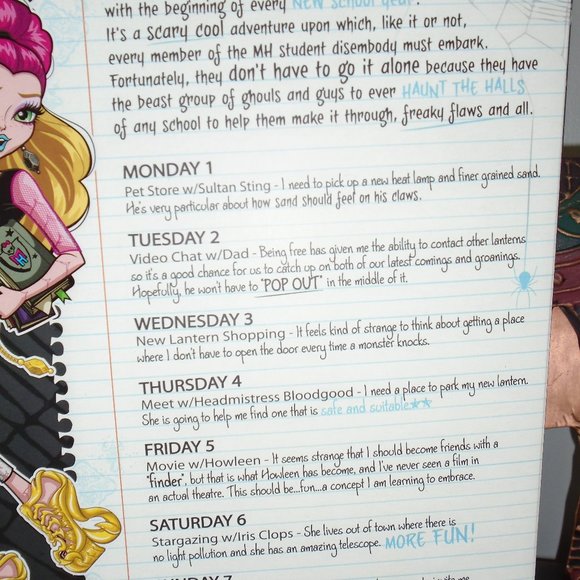 with the beginning of every NEW SCHOOL YEAR.
It's a scary cool adventure upon which, like it or not,
every member of the MH student disembody must embark.
Fortunately, they don't have to go it alone because they have
the beast group of ghouls and guys to ever HAUNT THE HALLS
of any school to help them make it through, freaky flaws and all.
MONDAY 1
Pet Store w/Sultan Sting - I need to pick up a new heat lamp and finer grained sand.
He's very particular about how sand should feel on his claws.
TUESDAY 2
Video Chat w/Dad - Being free has given me the ability to contact other lanterns
so it's a good chance for us to catch up on both of our latest comings and groanings.
Hopefully, he won't have to "POP OUT" in the middle of it.
WEDNESDAY 3
New Lantern Shopping - It feels kind of strange to think about getting a place
where I don't have to open the door every time a monster knocks.
THURSDAY 4
Meet w/Headmistress Bloodgood - I need a place to park my new lantern.
She is going to help me find one that is safe and suitable
FRIDAY 5
Movie w/Howleen - It seems strange that I should become friends with a
"finder", but that is what Howleen has become, and I've never seen a film in
an actual theatre. This should be...fun...a concept I am learning to embrace.
SATURDAY 6
Stargazing w/Iris Clops - She lives out of town where there is
no light pollution and she has an amazing telescope. MORE FUN!